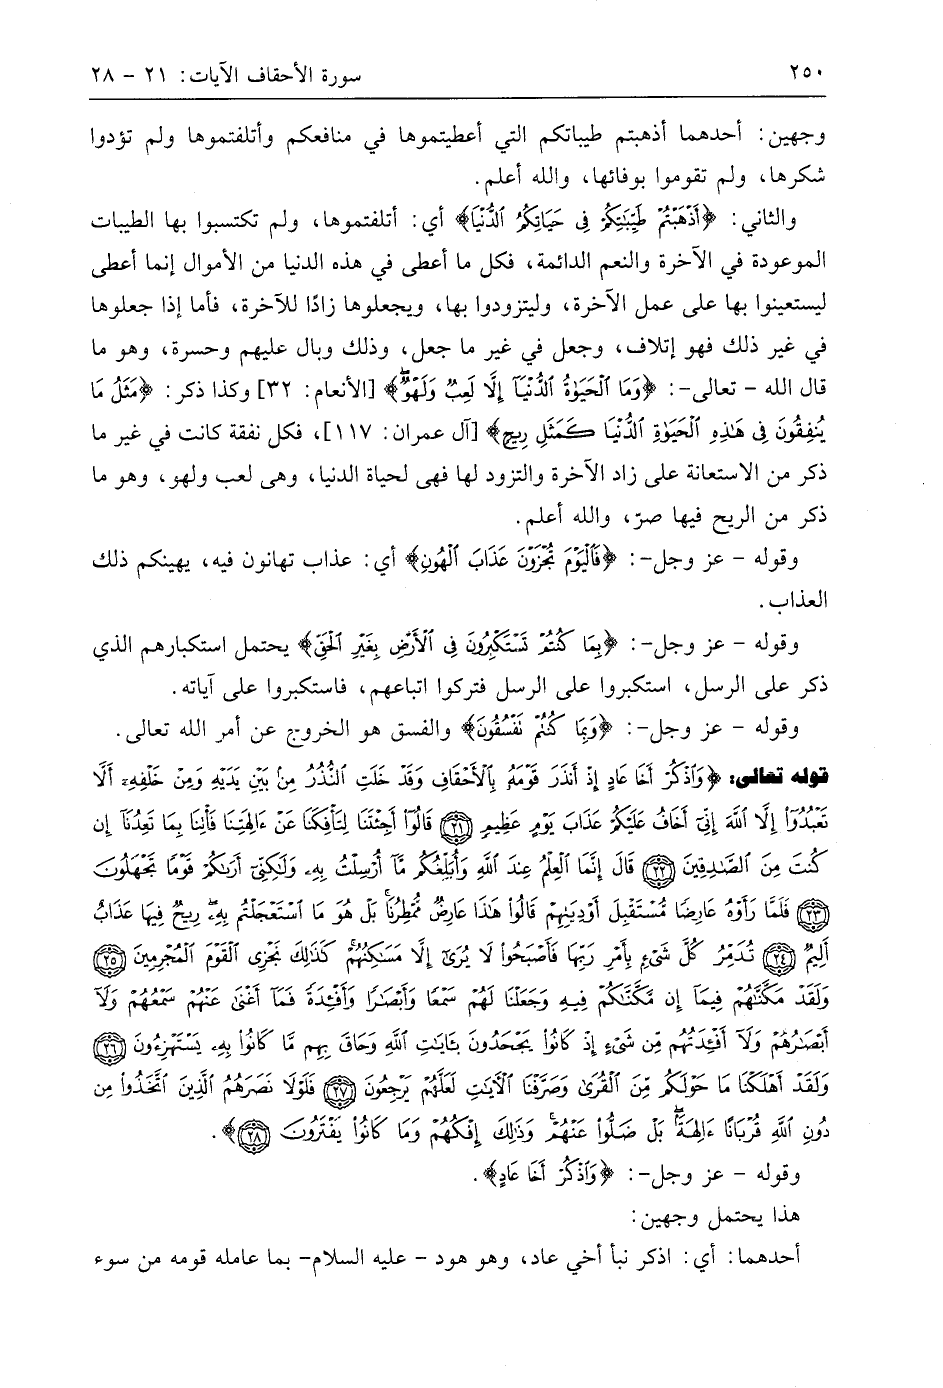 ٢٥٠ سورة الأحقاف الآيات: ٢١ - ٢٨
وجهين: أحدهما أذهبتم طيباتكم التي أعطيتموها في منافعكم وأتلفتموها ولم تؤدوا
شكرها، ولم تقوموا بوفائها، والله أعلم.
والثاني: ﴿أَذْهَبْتُمْ طَيِّبَٰتِكُمْ فِى حَيَاتِكُمُ ٱلدُّنْيَا﴾ أي: أتلفتموها، ولم تكتسبوا بها الطيبات
الموعودة في الآخرة والنعم الدائمة، فكل ما أعطى في هذه الدنيا من الأموال إنما أعطى
ليستعينوا بها على عمل الآخرة، وليتزودوا بها، ويجعلوها زادًا للآخرة، فأما إذا جعلوها
في غير ذلك فهو إتلاف، وجعل في غير ما جعل، وذلك وبال عليهم وحسرة، وهو ما
قال الله - تعالى-: ﴿وَمَا ٱلْحَيَوٰةُ ٱلدُّنْيَآ إِلَّا لَعِبٌ وَلَهْوٌۖ﴾ [الأنعام: ٣٢] وكذا ذكر: ﴿مَثَلُ مَا
يُنفِقُونَ فِى هَٰذِهِ ٱلْحَيَوٰةِ ٱلدُّنْيَا كَمَثَلِ رِيحٍ﴾ [آل عمران: ١١٧]، فكل نفقة كانت في غير ما
ذكر من الاستعانة على زاد الآخرة والتزود لها فهى لحياة الدنيا، وهى لعب ولهو، وهو ما
ذكر من الريح فيها صرّ، والله أعلم.
وقوله - عز وجل-: ﴿فَٱلْيَوْمَ تُجْزَوْنَ عَذَابَ ٱلْهُونِ﴾ أي: عذاب تهانون فيه، يهينكم ذلك
العذاب.
وقوله - عز وجل-: ﴿بِمَا كُنتُمْ تَسْتَكْبِرُونَ فِى ٱلْأَرْضِ بِغَيْرِ ٱلْحَقِّ﴾ يحتمل استكبارهم الذي
ذكر على الرسل، استكبروا على الرسل فتركوا اتباعهم، فاستكبروا على آياته.
وقوله - عز وجل-: ﴿وَبِمَا كُنتُمْ تَفْسُقُونَ﴾ والفسق هو الخروج عن أمر الله تعالى.
قوله تعالى: ﴿وَٱذْكُرْ أَخَا عَادٍ إِذْ أَنذَرَ قَوْمَهُۥ بِٱلْأَحْقَافِ وَقَدْ خَلَتِ ٱلنُّذُرُ مِنۢ بَيْنِ يَدَيْهِ وَمِنْ خَلْفِهِۦٓ أَلَّا
تَعْبُدُوٓا۟ إِلَّا ٱللَّهَ إِنِّىٓ أَخَافُ عَلَيْكُمْ عَذَابَ يَوْمٍ عَظِيمٍ ٢١ قَالُوٓا۟ أَجِئْتَنَا لِتَأْفِكَنَا عَنْ ءَالِهَتِنَا فَأْتِنَا بِمَا تَعِدُنَآ إِن
كُنتَ مِنَ ٱلصَّٰدِقِينَ ٢٢ قَالَ إِنَّمَا ٱلْعِلْمُ عِندَ ٱللَّهِ وَأُبَلِّغُكُم مَّآ أُرْسِلْتُ بِهِۦ وَلَٰكِنِّىٓ أَرَىٰكُمْ قَوْمًا تَجْهَلُونَ
٢٣ فَلَمَّا رَأَوْهُ عَارِضًا مُّسْتَقْبِلَ أَوْدِيَتِهِمْ قَالُوا۟ هَٰذَا عَارِضٌ مُّمْطِرُنَاۚ بَلْ هُوَ مَا ٱسْتَعْجَلْتُم بِهِۦۖ رِيحٌ فِيهَا عَذَابٌ
أَلِيمٌ ٢٤ تُدَمِّرُ كُلَّ شَىْءٍۭ بِأَمْرِ رَبِّهَا فَأَصْبَحُوا۟ لَا يُرَىٰٓ إِلَّا مَسَٰكِنُهُمْۚ كَذَٰلِكَ نَجْزِى ٱلْقَوْمَ ٱلْمُجْرِمِينَ ٢٥
وَلَقَدْ مَكَّنَّٰهُمْ فِيمَآ إِن مَّكَّنَّٰكُمْ فِيهِ وَجَعَلْنَا لَهُمْ سَمْعًا وَأَبْصَٰرًا وَأَفْـِٔدَةً فَمَآ أَغْنَىٰ عَنْهُمْ سَمْعُهُمْ وَلَآ
أَبْصَٰرُهُمْ وَلَآ أَفْـِٔدَتُهُم مِّن شَىْءٍ إِذْ كَانُوا۟ يَجْحَدُونَ بِـَٔايَٰتِ ٱللَّهِ وَحَاقَ بِهِم مَّا كَانُوا۟ بِهِۦ يَسْتَهْزِءُونَ ٢٦
وَلَقَدْ أَهْلَكْنَا مَا حَوْلَكُم مِّنَ ٱلْقُرَىٰ وَصَرَّفْنَا ٱلْءَايَٰتِ لَعَلَّهُمْ يَرْجِعُونَ ٢٧ فَلَوْلَا نَصَرَهُمُ ٱلَّذِينَ ٱتَّخَذُوا۟ مِن
دُونِ ٱللَّهِ قُرْبَانًا ءَالِهَةًۢۖ بَلْ ضَلُّوا۟ عَنْهُمْۚ وَذَٰلِكَ إِفْكُهُمْ وَمَا كَانُوا۟ يَفْتَرُونَ ٢٨﴾.
وقوله - عز وجل-: ﴿وَٱذْكُرْ أَخَا عَادٍ﴾.
هذا يحتمل وجهين:
أحدهما: أي: اذكر نبأ أخي عاد، وهو هود - عليه السلام- بما عامله قومه من سوء